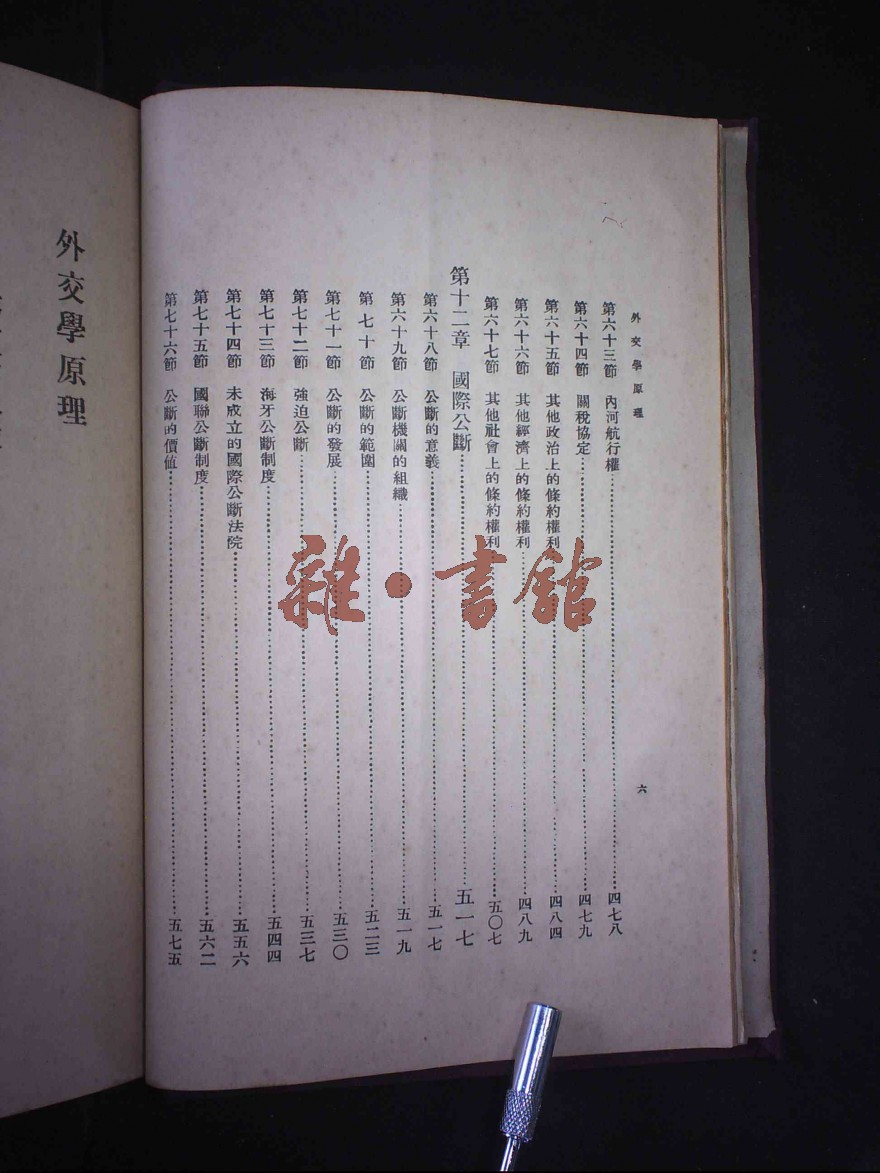 外交學原理
六
第六十三節　內河航行權…………四七八
第六十四節　關稅協定…………四七九
第六十五節　其他政治上的條約權利…………四八四
第六十六節　其他經濟上的條約權利…………四八九
第六十七節　其他社會上的條約權利…………五〇七
第十二章　國際公斷…………五一七
第六十八節　公斷的意義…………五一七
第六十九節　公斷機關的組織…………五一九
第七十節　公斷的範圍…………五二三
第七十一節　公斷的發展…………五三〇
第七十二節　強迫公斷…………五三七
第七十三節　海牙公斷制度…………五四四
第七十四節　未成立的國際公斷法院…………五五六
第七十五節　國聯公斷制度…………五六二
第七十六節　公斷的價值…………五七五
外交學原理
雜·書館